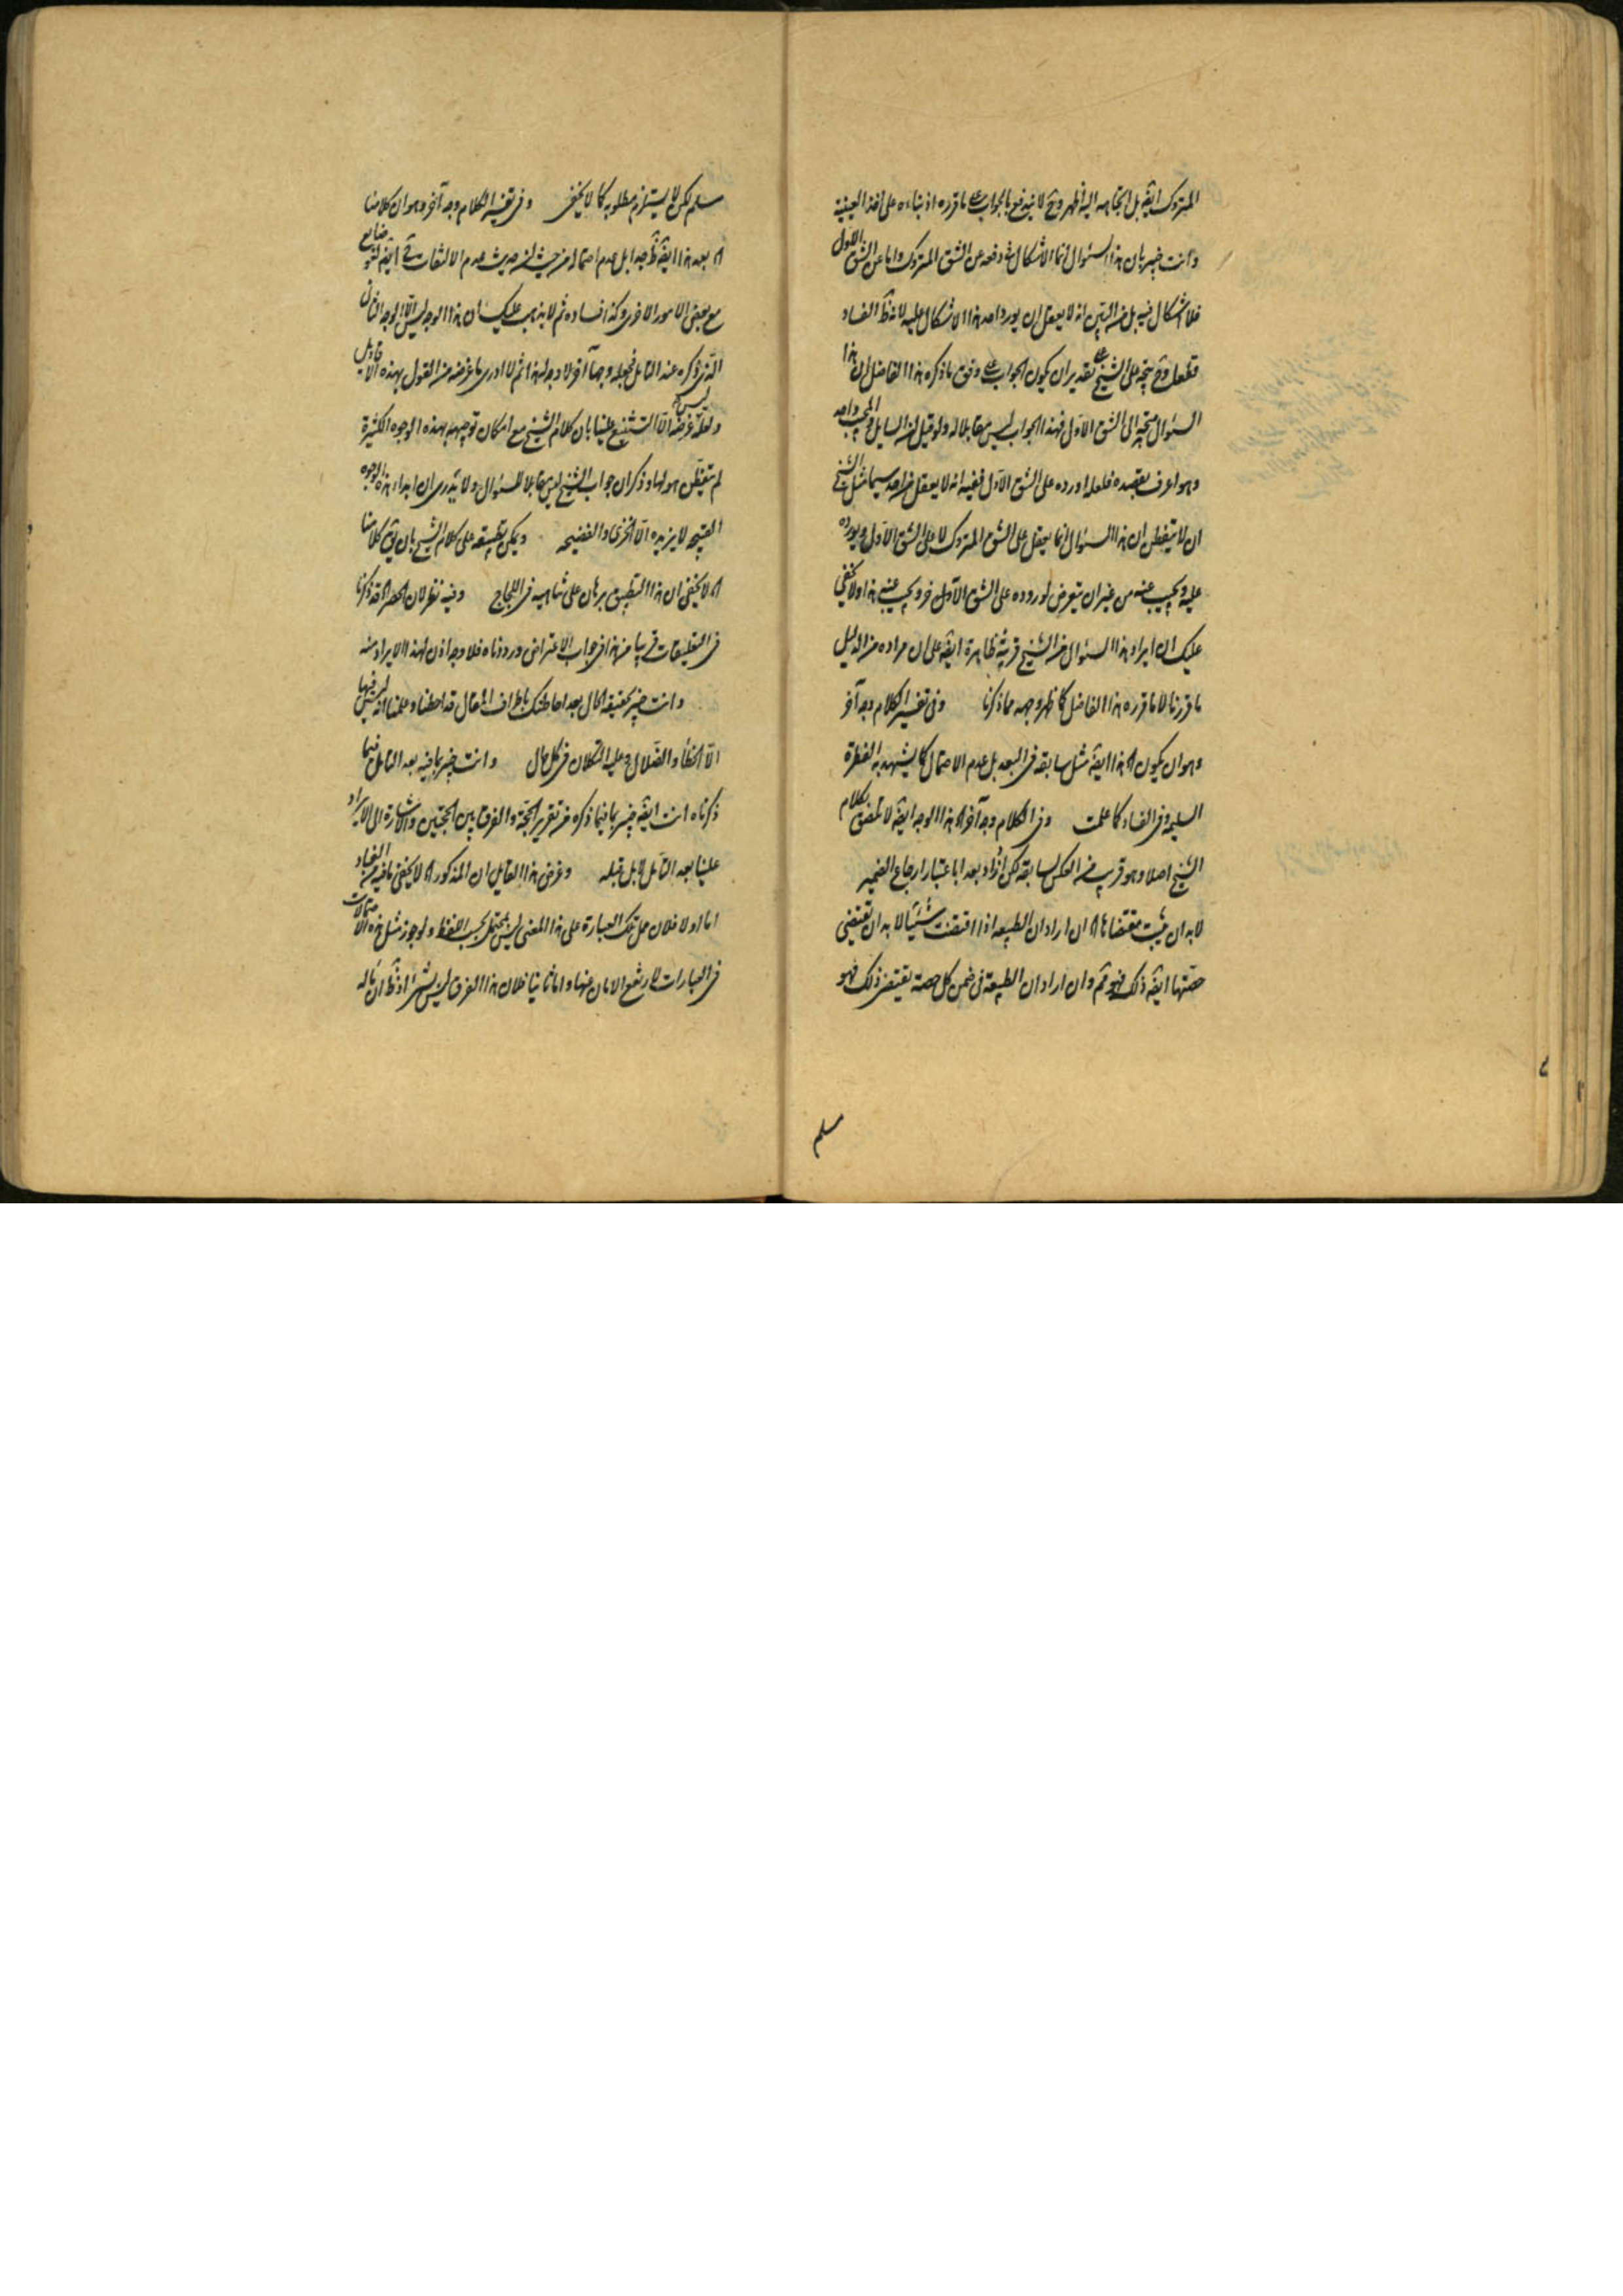 المتروك ايضه بل اتجاهه اليه اظهر وح لا يندفع بالجواب على ما قرره اذ بناءه على اخذ العينية
وانت خبير بان هذا السئوال انما الاشكال فى دفعه عن الشق المتروك واما عن الشق الاول
فلا اشكال فيه بل من البيّن انه لا يعقل ان يورد احد هذا الاشكال عليه لانه ظ الفساد
فلعل وح يتجه على الشيخ على تقدير ان يكون الجواب على وفق ما ذكره هذا الفاضل ان هذا
السئوال متجه الى الشق الاول فهذا الجواب ليس مقابلا له ولو قيل ان السايل والمجيب واحد
وهو اعرف بقصده فلعله اورده على الشق الاول ففيه انه لا يعقل من احد سيما مثل الشيخ
ان لا يتفطن ان هذا السئوال انما يعقل على الشق المتروك لا على الشق الاول ويورده
عليه ويجيب عنه من غير ان يتعرض لوروده على الشق الاول ويجيب عنه هذا ولا يخفى
عليك ان ايراد هذا السئوال من الشيخ قرينة ظاهرة ايضه على ان مراده من الدليل
ما قررنا لا ما قرره هذا الفاضل كما ظهر وجهه مما ذكرنا وفى تفسير الكلام وجه آخر
وهو ان يكون اه هذا ايضه مثل سابقه فى البعد بل عدم الاحتمال كما يشهد به الفطرة
السليمة وفى الفساد كما علمت وفى الكلام وجه آخر اه هذا الوجه ايضه لا تعلق بكلام
الشيخ اصلا وهو قريب من العكس لسابقه لكن ازداد بعدا باعتبار ارجاع الضمير
لا بد ان يثبت مقتضاها اه ان اراد ان الطبيعه اذا اقتضت شيئا لا بد ان تقتضى
حصتها ايضه ذلك فهو مم وان اراد ان الطبيعة فى ضمن كل حصة تقتضى ذلك فهو
مسلم
مسلم لكن لا يستلزم مطلوبه كما لا يخفى وفى تفسير الكلام وجه آخر وهو ان كلامنا
اه بعد هذا ايضه ظ جدا بل عدم احتماله من حيث ان حديث عدم الالتفات ايضه لغو ضايع
مع بعض الامور الاخرى وكذا فساده ثم لا يذهب عليك ان هذا الوجه ليس الا الوجه الثانى
الذى ذكره عند التامل فجعله وجها آخر لا وجه له هذا ثم لا ادرى ما غرضه من القول بهذه الاقاويل
ولعله ليس غرضه الا التشنيع علينا بان كلام الشيخ مع امكان توجيهه بهذه الوجوه الكثيرة
لم يتفطن هو لها وذكر ان جواب الشيخ ليس مقابلا للسئوال ولا يدرى ان ابداء هذه الوجوه
القبيحه لا يزيده الا الخزى والفضيحه ويمكن تطبيقه على كلام الشيخ بان يق كلامنا
اه لا يخفى ان هذا التطبيق برهان على تناهيه فى اللجاج وفيه نظر لان الحصر اه قد ذكرنا
فى التعليقات قريبا من هذا فى جواب الاعتراض ورددناه فلا وجه اذن لهذا الايراد منه
وانت خبير بحقيقة الحال بعد احاطتك باطراف المقال قد احطنا وعلمنا انه ليس فيها
الا الخطأ والضلال وعليه التكلان فى كل حال وانت خبير بما فيه بعد التامل فيما
ذكرناه انت ايضه خبير بما فيما ذكره من تقرير الحجة والفرق بين الحجتين والاشارة الى الايراد
علينا بعد التامل بل قبله وغرض هذا القايل ان المذكور اه لا يخفى ما فيه من الفساد
اما اولا فلان حمل تلك العبارة على هذا المعنى ليس يحتمل بحسب اللفظ ولو جوز مثل هذه الاحتمالات
فى العبارات لارتفع الامان عنها واما ثانيا فلان هذا الفرق ليس بشئ اذ ظ ان مآله